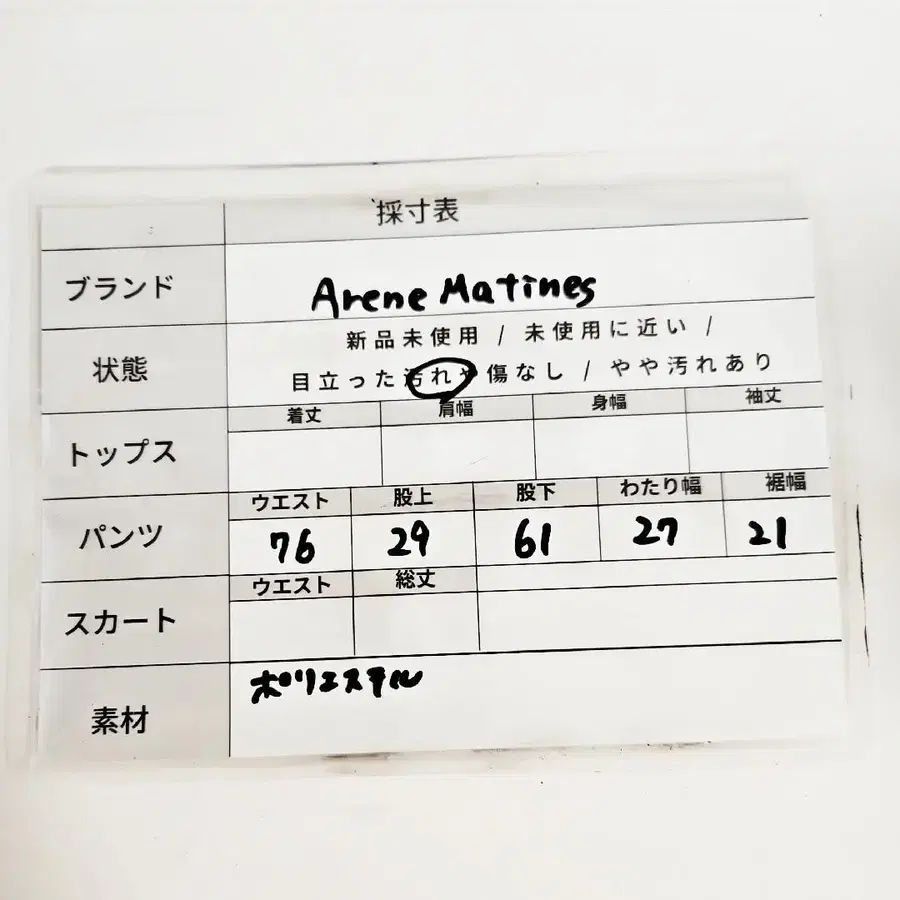 採寸表
ブランド Arene Matines
状態 新品未使用 / 未使用に近い /
目立った汚れや傷なし / やや汚れあり
トップス 着丈 肩幅 身幅 袖丈
パンツ ウエスト 股上 股下 わたり幅 裾幅
76 29 61 27 21
スカート ウエスト 総丈
素材 ポリエステル